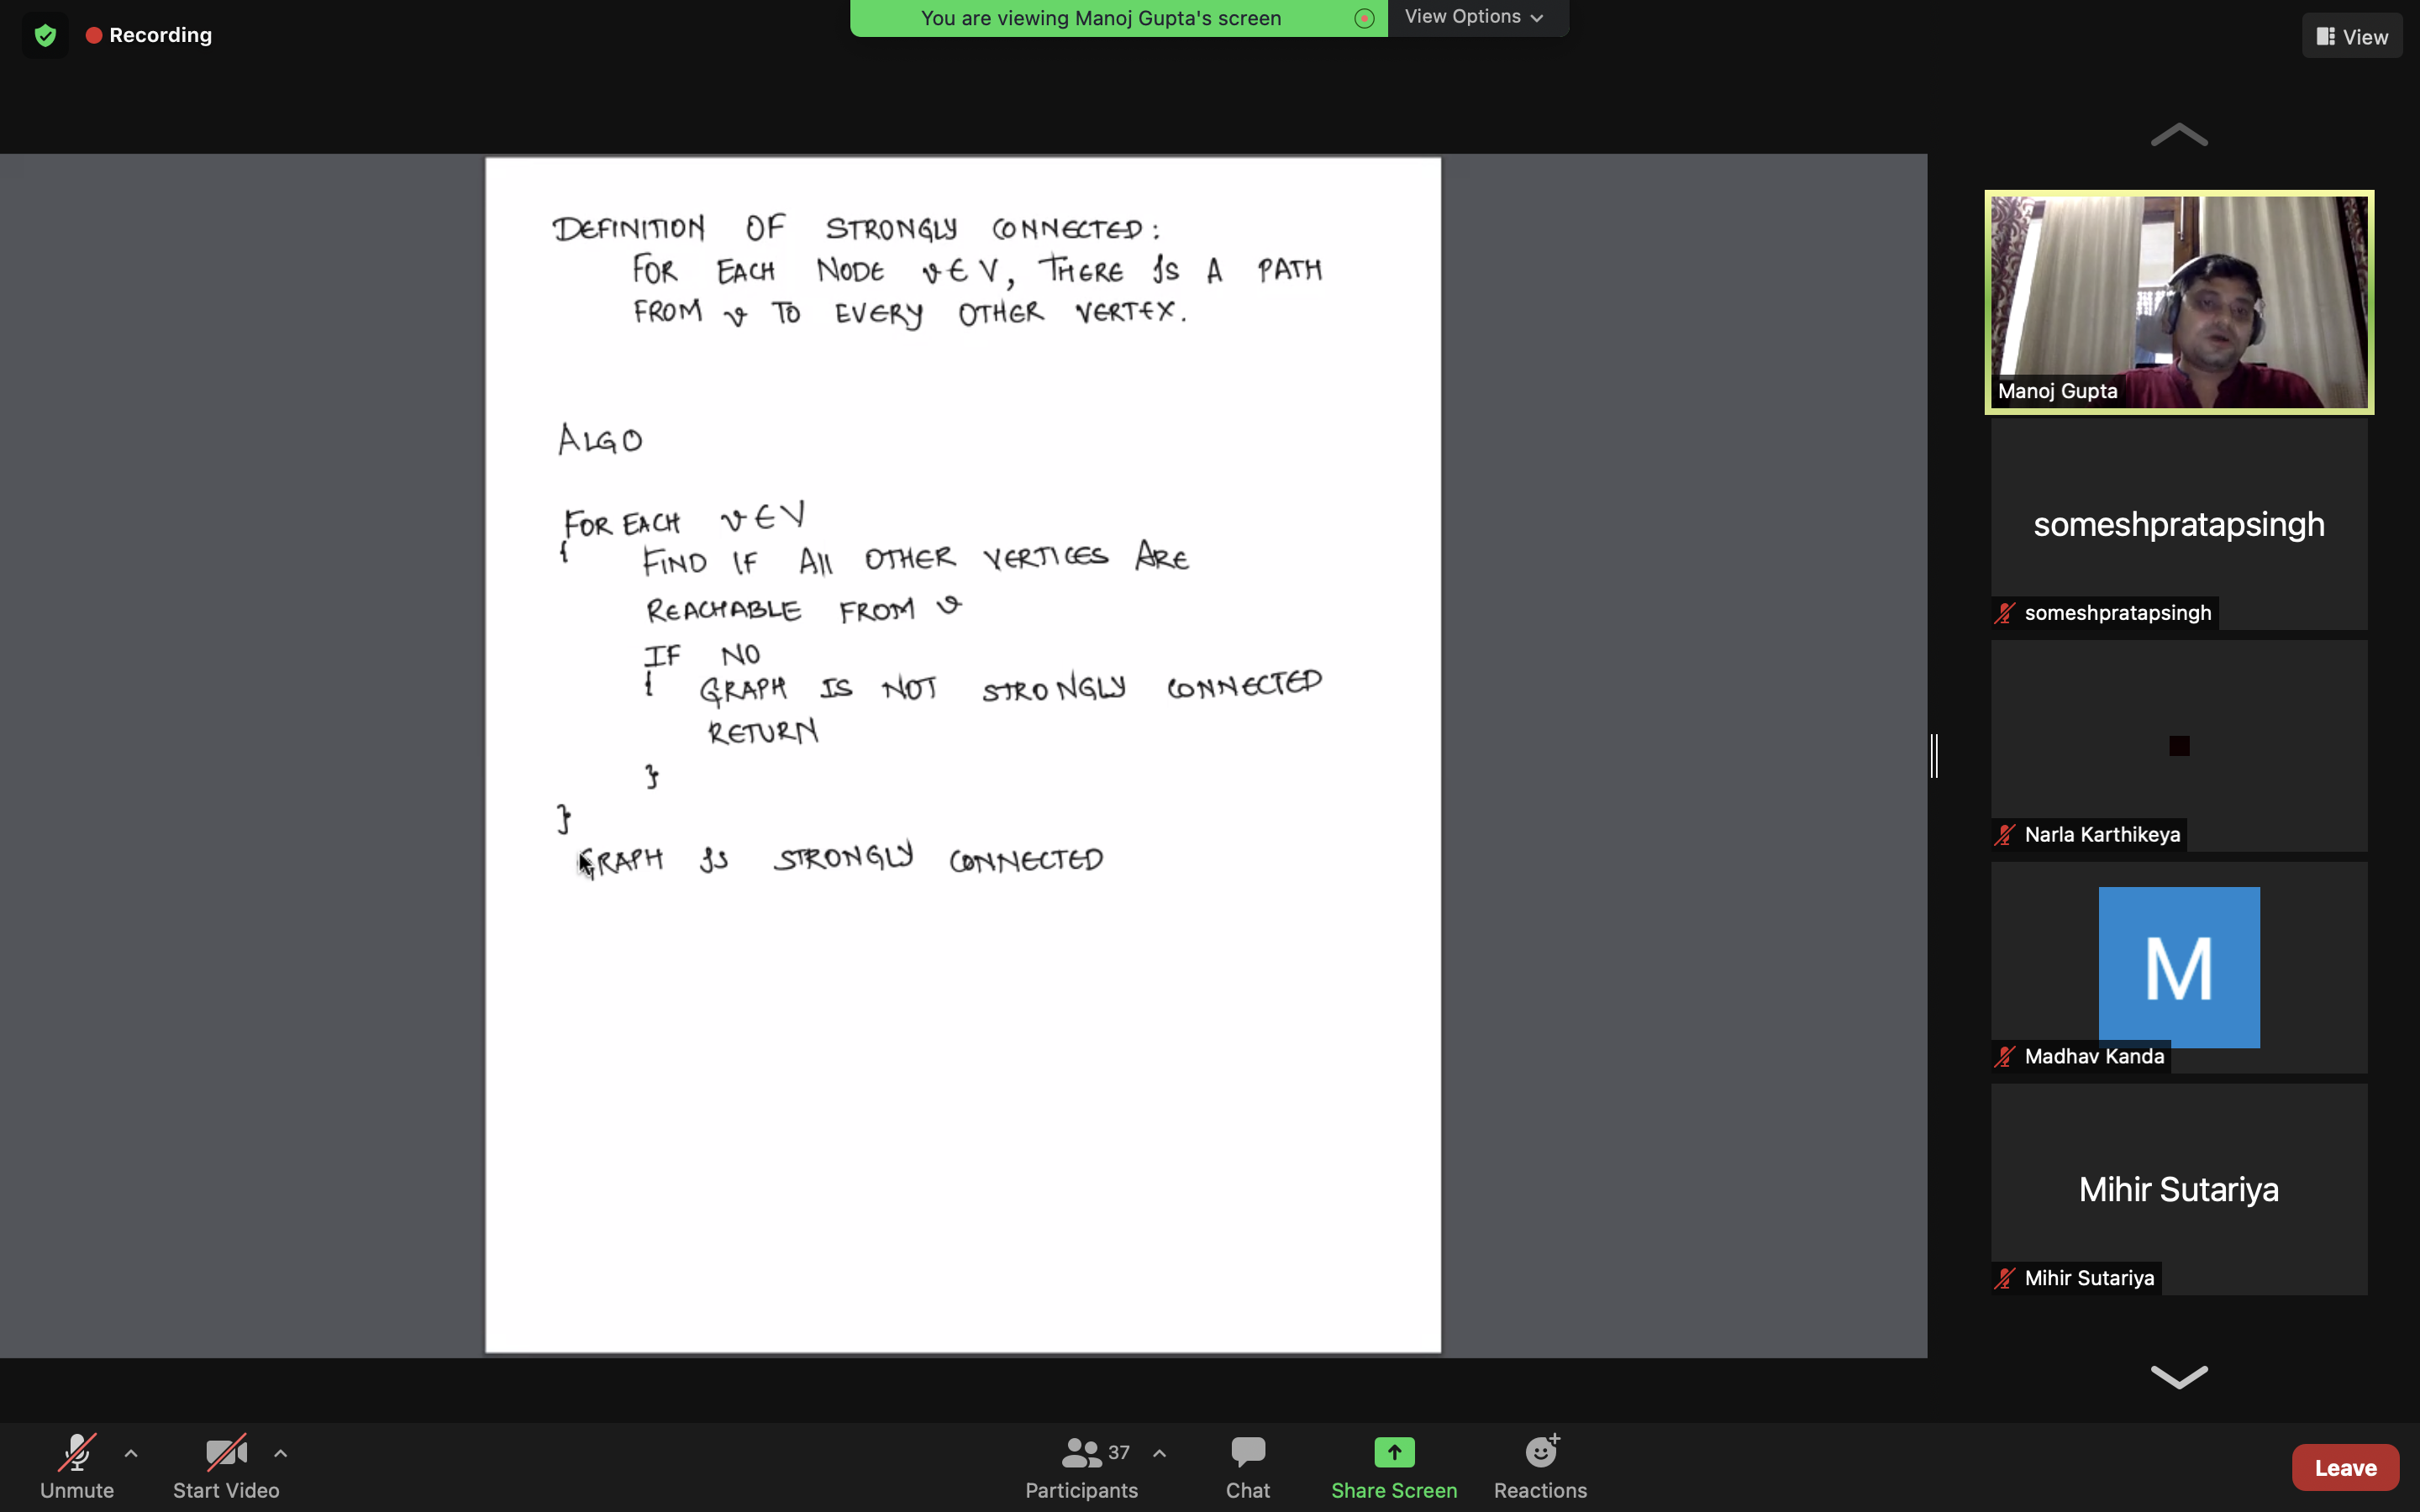 You are viewing Manoj Gupta's screen
View Options
Recording
View
DEFINITION OF STRONGLY CONNECTED:
FOR EACH NODE v∈V, THERE IS A PATH
FROM v TO EVERY OTHER VERTEX.
ALGO
FOR EACH v∈V
{ FIND IF All OTHER VERTICES ARE
REACHABLE FROM v
IF NO
{ GRAPH IS NOT STRONGLY CONNECTED
RETURN
}
}
GRAPH IS STRONGLY CONNECTED
Manoj Gupta
someshpratapsingh
someshpratapsingh
Narla Karthikeya
M
Madhav Kanda
Mihir Sutariya
Mihir Sutariya
Unmute
Start Video
37
Participants
Chat
Share Screen
Reactions
Leave